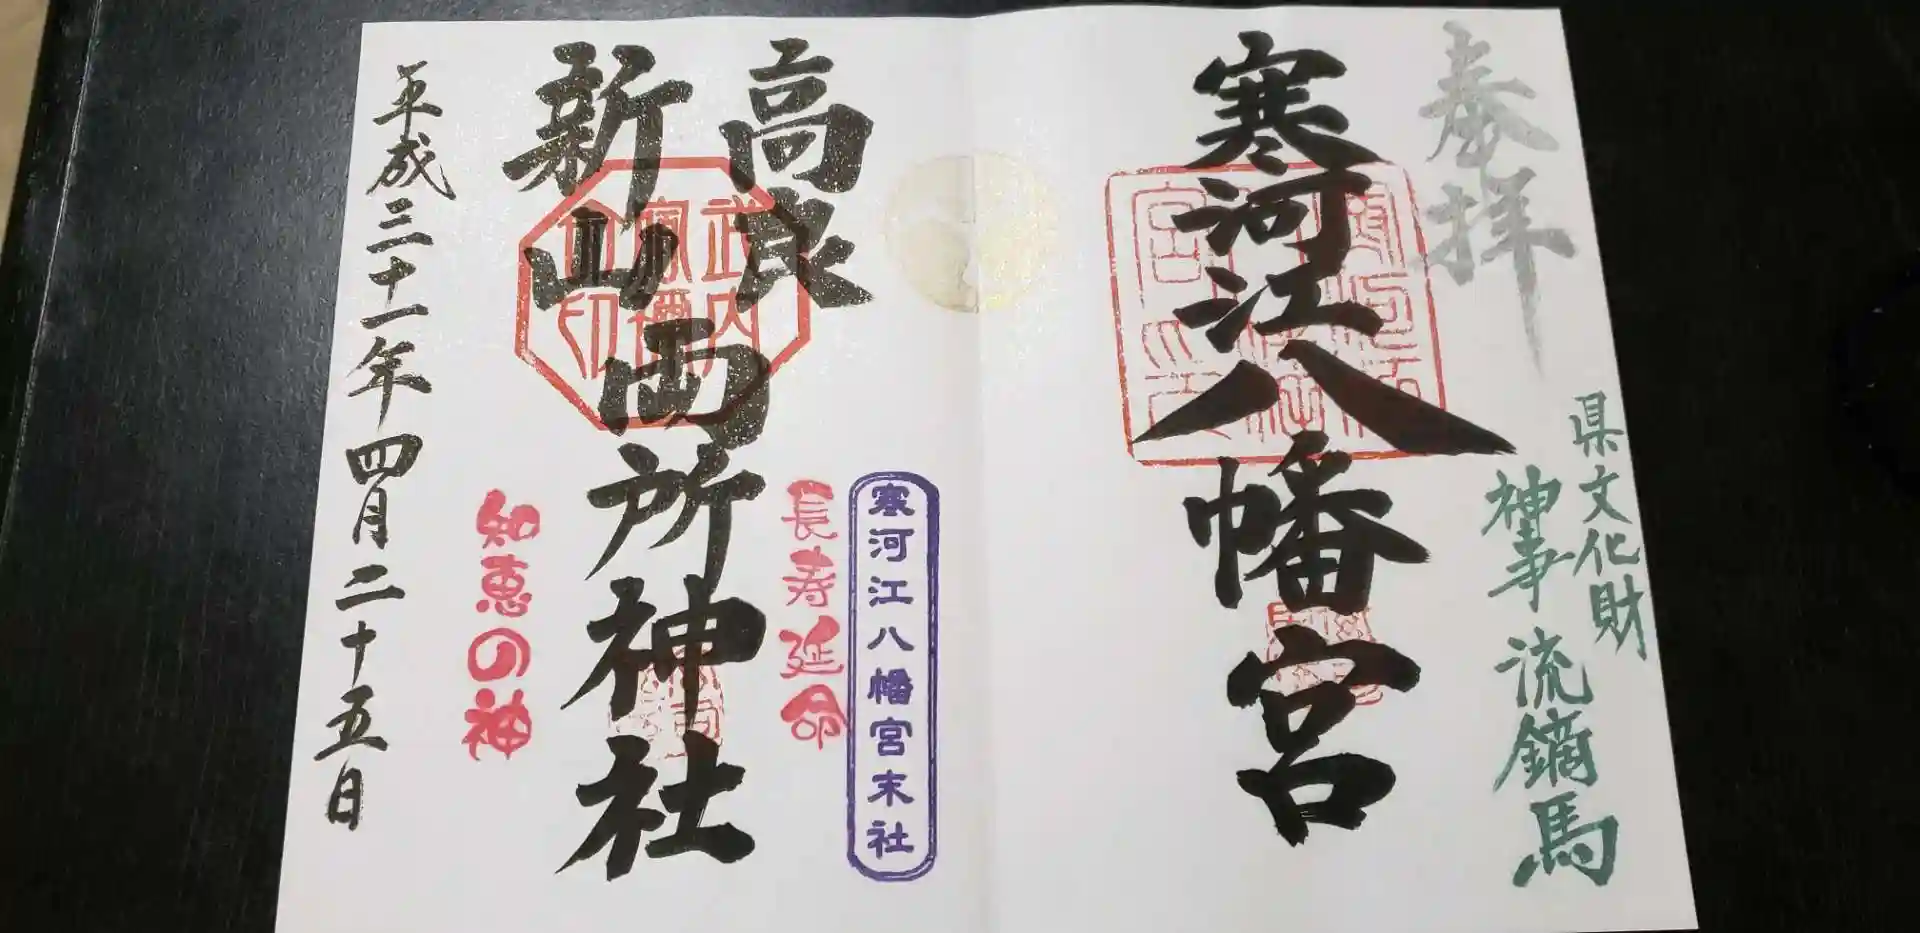 奉拝
県文化財
神事 流鏑馬
寒河江八幡宮
高良
新山両所神社
寒河江八幡宮末社
長寿延命
知恵の神
平成三十一年四月二十五日